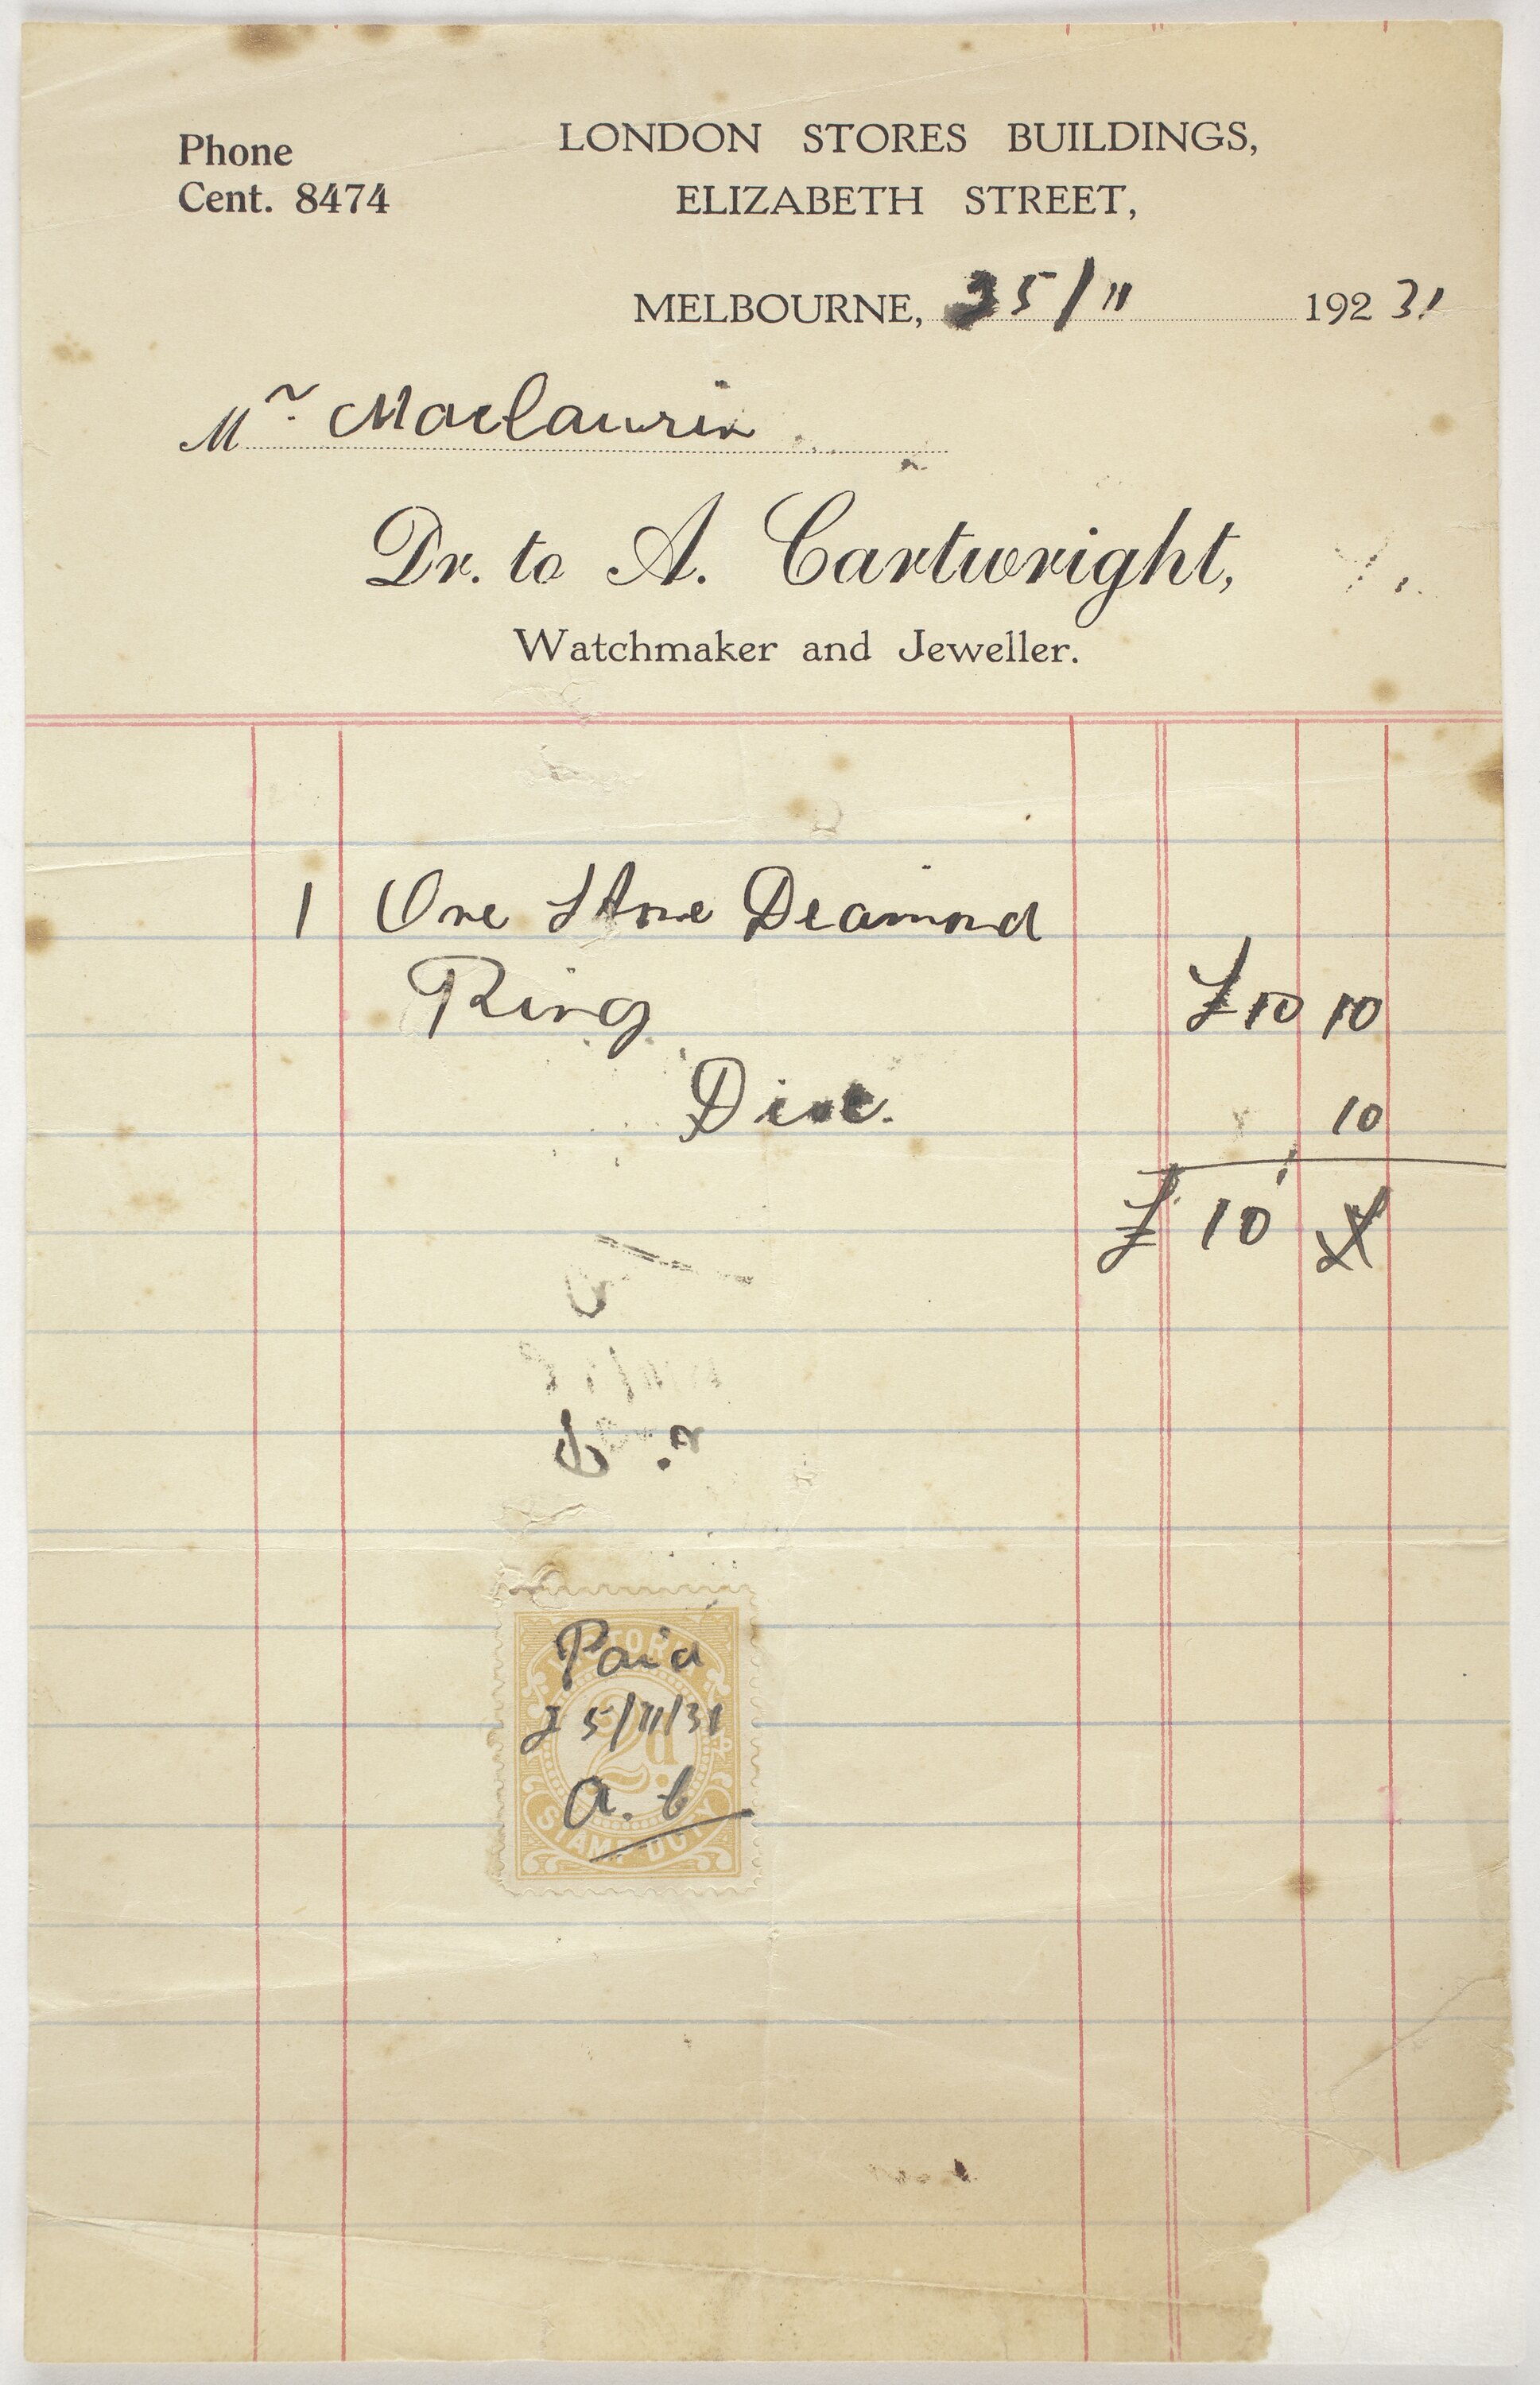 Phone
Cent. 8474
LONDON STORES BUILDINGS,
ELIZABETH STREET,
MELBOURNE, 25/11 192 31
Mr Maclaurin
Dr. to A. Cartwright,
Watchmaker and Jeweller.
1 One Stone Diamond
Ring £10 10
Disc. 10
£10 X
VICTORIA
Paid
25/11/31
2d.
A. C
STAMP DUTY